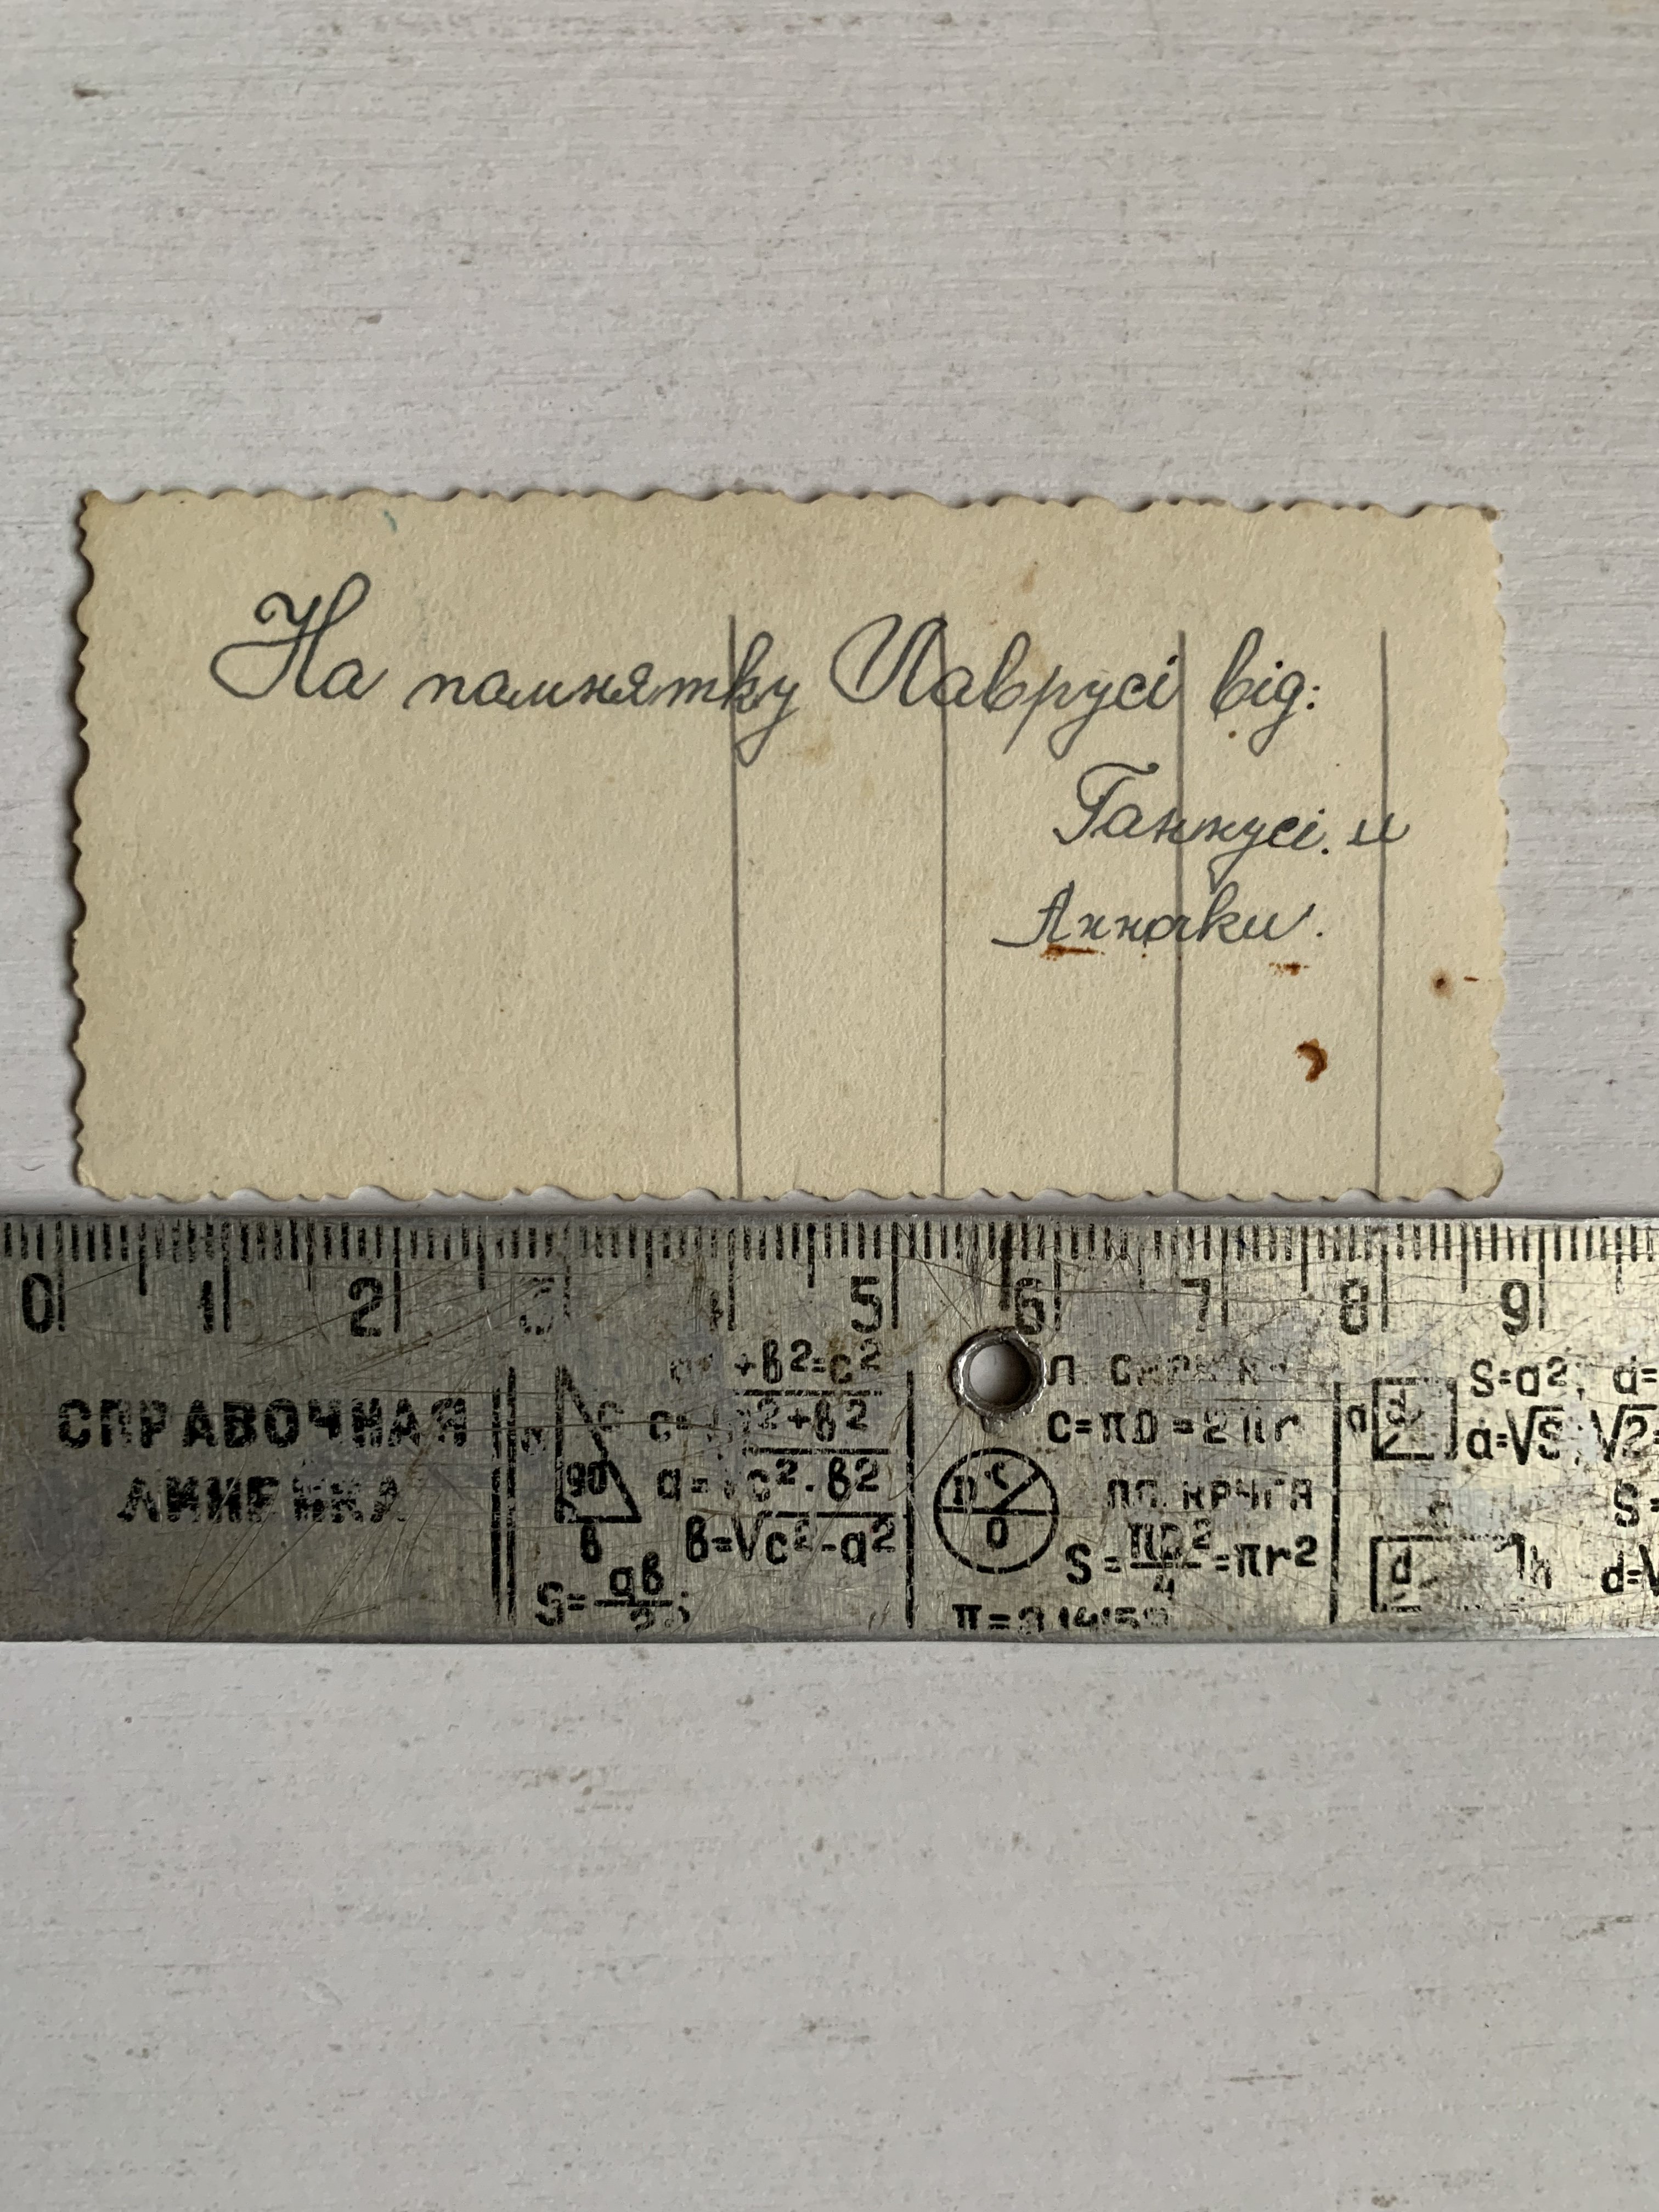 На памнятку Лаврусі від:
Ганнусі. и
Аннаки.
0 1 2 3 4 5 6 7 8 9
СПРАВОЧНАЯ
ЛИНЕЙКА
+в²=c²
c= ²+в²
a=√c²-в²
в=√c²-a²
90
в
S=aв/2;
C=πD=2πr
ПЛ. КРУГА
S=πD²/4=πr²
π=3,14159
S=a²; d=
a=√S; √2
S=
d h
d=√